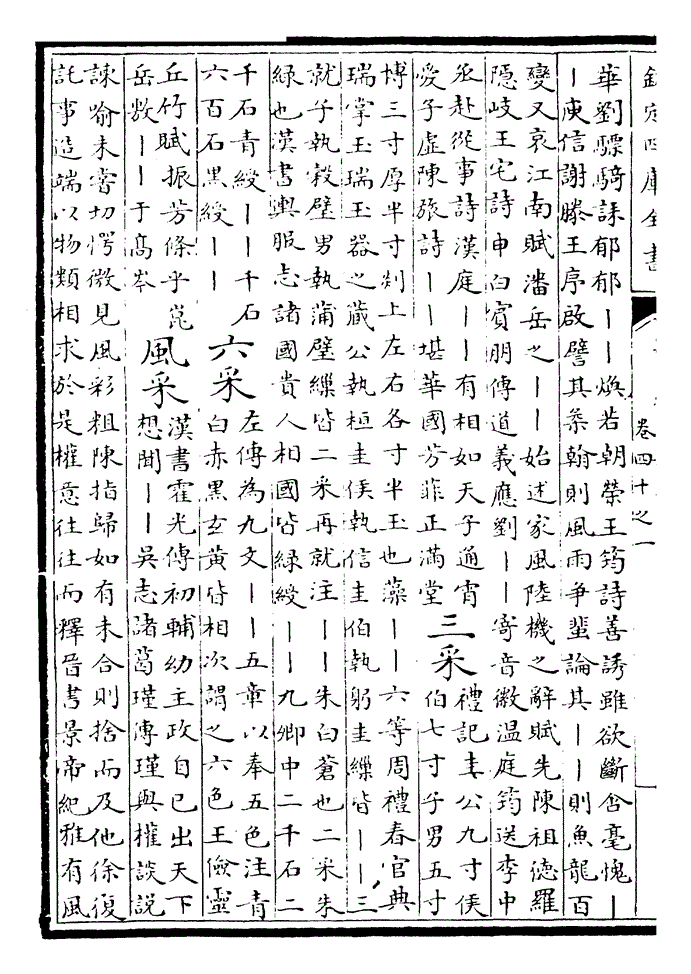 欽定四庫全書
卷四十之一
華劉驃騎誄郁郁丨丨煥若朝榮王筠詩善誘雖欲斷含毫愧丨
丨庾信謝滕王序啟譬其桼翰則風雨争蜚論其丨丨則魚龍百
變又哀江南賦潘岳之丨丨始述家風陸機之辭賦先陳祖德羅
隱岐王宅詩申白賓朋傳道義應劉丨丨寄音徽温庭筠送李中
丞赴從事詩漢庭丨丨有相如天子通宵
愛子虛陳旅詩丨丨堪華國芳菲正滿堂
三采
禮記圭公九寸侯
伯七寸子男五寸
博三寸厚半寸剡上左右各寸半玉也藻丨丨六等周禮春官典
瑞掌玉瑞玉器之藏公執桓圭侯執信圭伯執躬圭繅皆丨丨三
就子執榖璧男執蒲璧繅皆二采再就注丨丨朱白蒼也二采朱
緑也漢書輿服志諸國貴人相國皆緑綬丨丨九卿中二千石二
千石青綬丨丨千石
六百石黑綬丨丨
六采
左傳為九文丨丨五章以奉五色注青
白赤黑玄黄皆相次謂之六色王儉靈
丘竹賦振芳條乎崑
岳敷丨丨于髙岑
風采
漢書霍光傳初輔幼主政自己出天下
想聞丨丨吳志諸葛瑾傳瑾與權談説
諫喻未嘗切愕微見風彩粗陳指歸如有未合則捨而及他徐復
託事造端以物類相求於是權意往往而釋晉書景帝紀雅有風